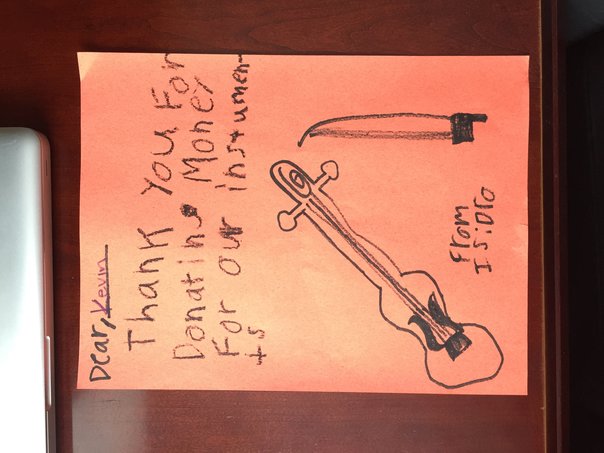 Dear, Kevin
Thank You For
Donating Money
For our instrumen-
ts
From
Isidro